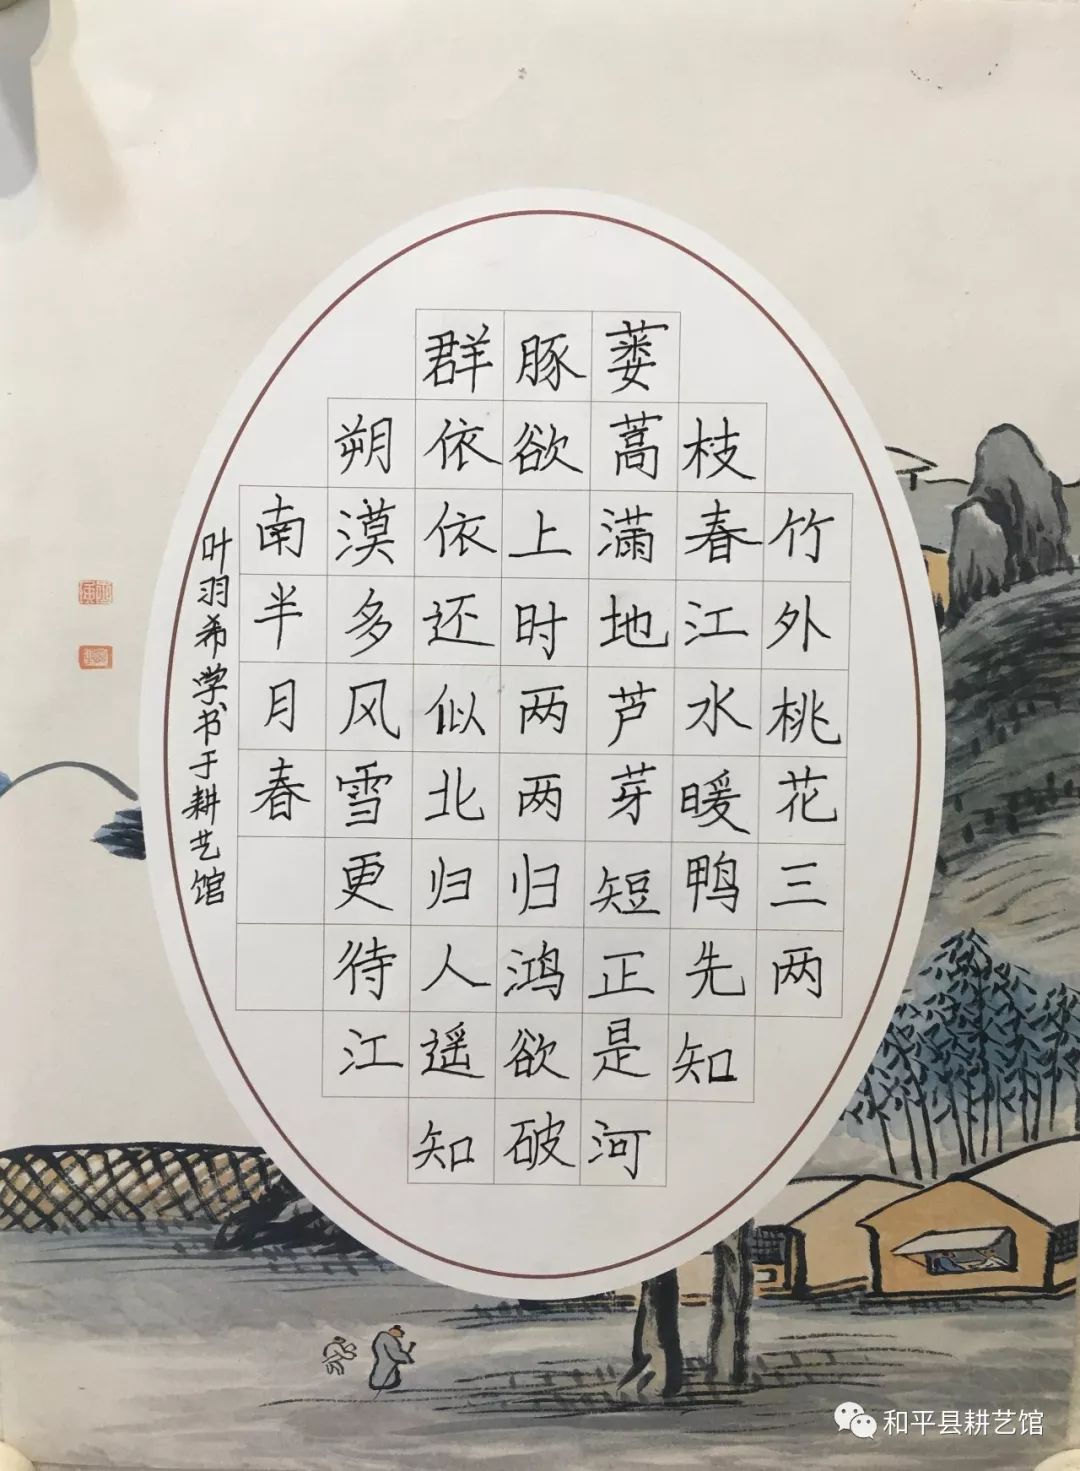 竹外桃花三两
枝春江水暖鸭先知
蒌蒿满地芦芽短正是河
豚欲上时两两归鸿欲破
群依依还似北归人遥知
朔漠多风雪更待江
南半月春
叶羽希学书于耕艺馆
和平县耕艺馆